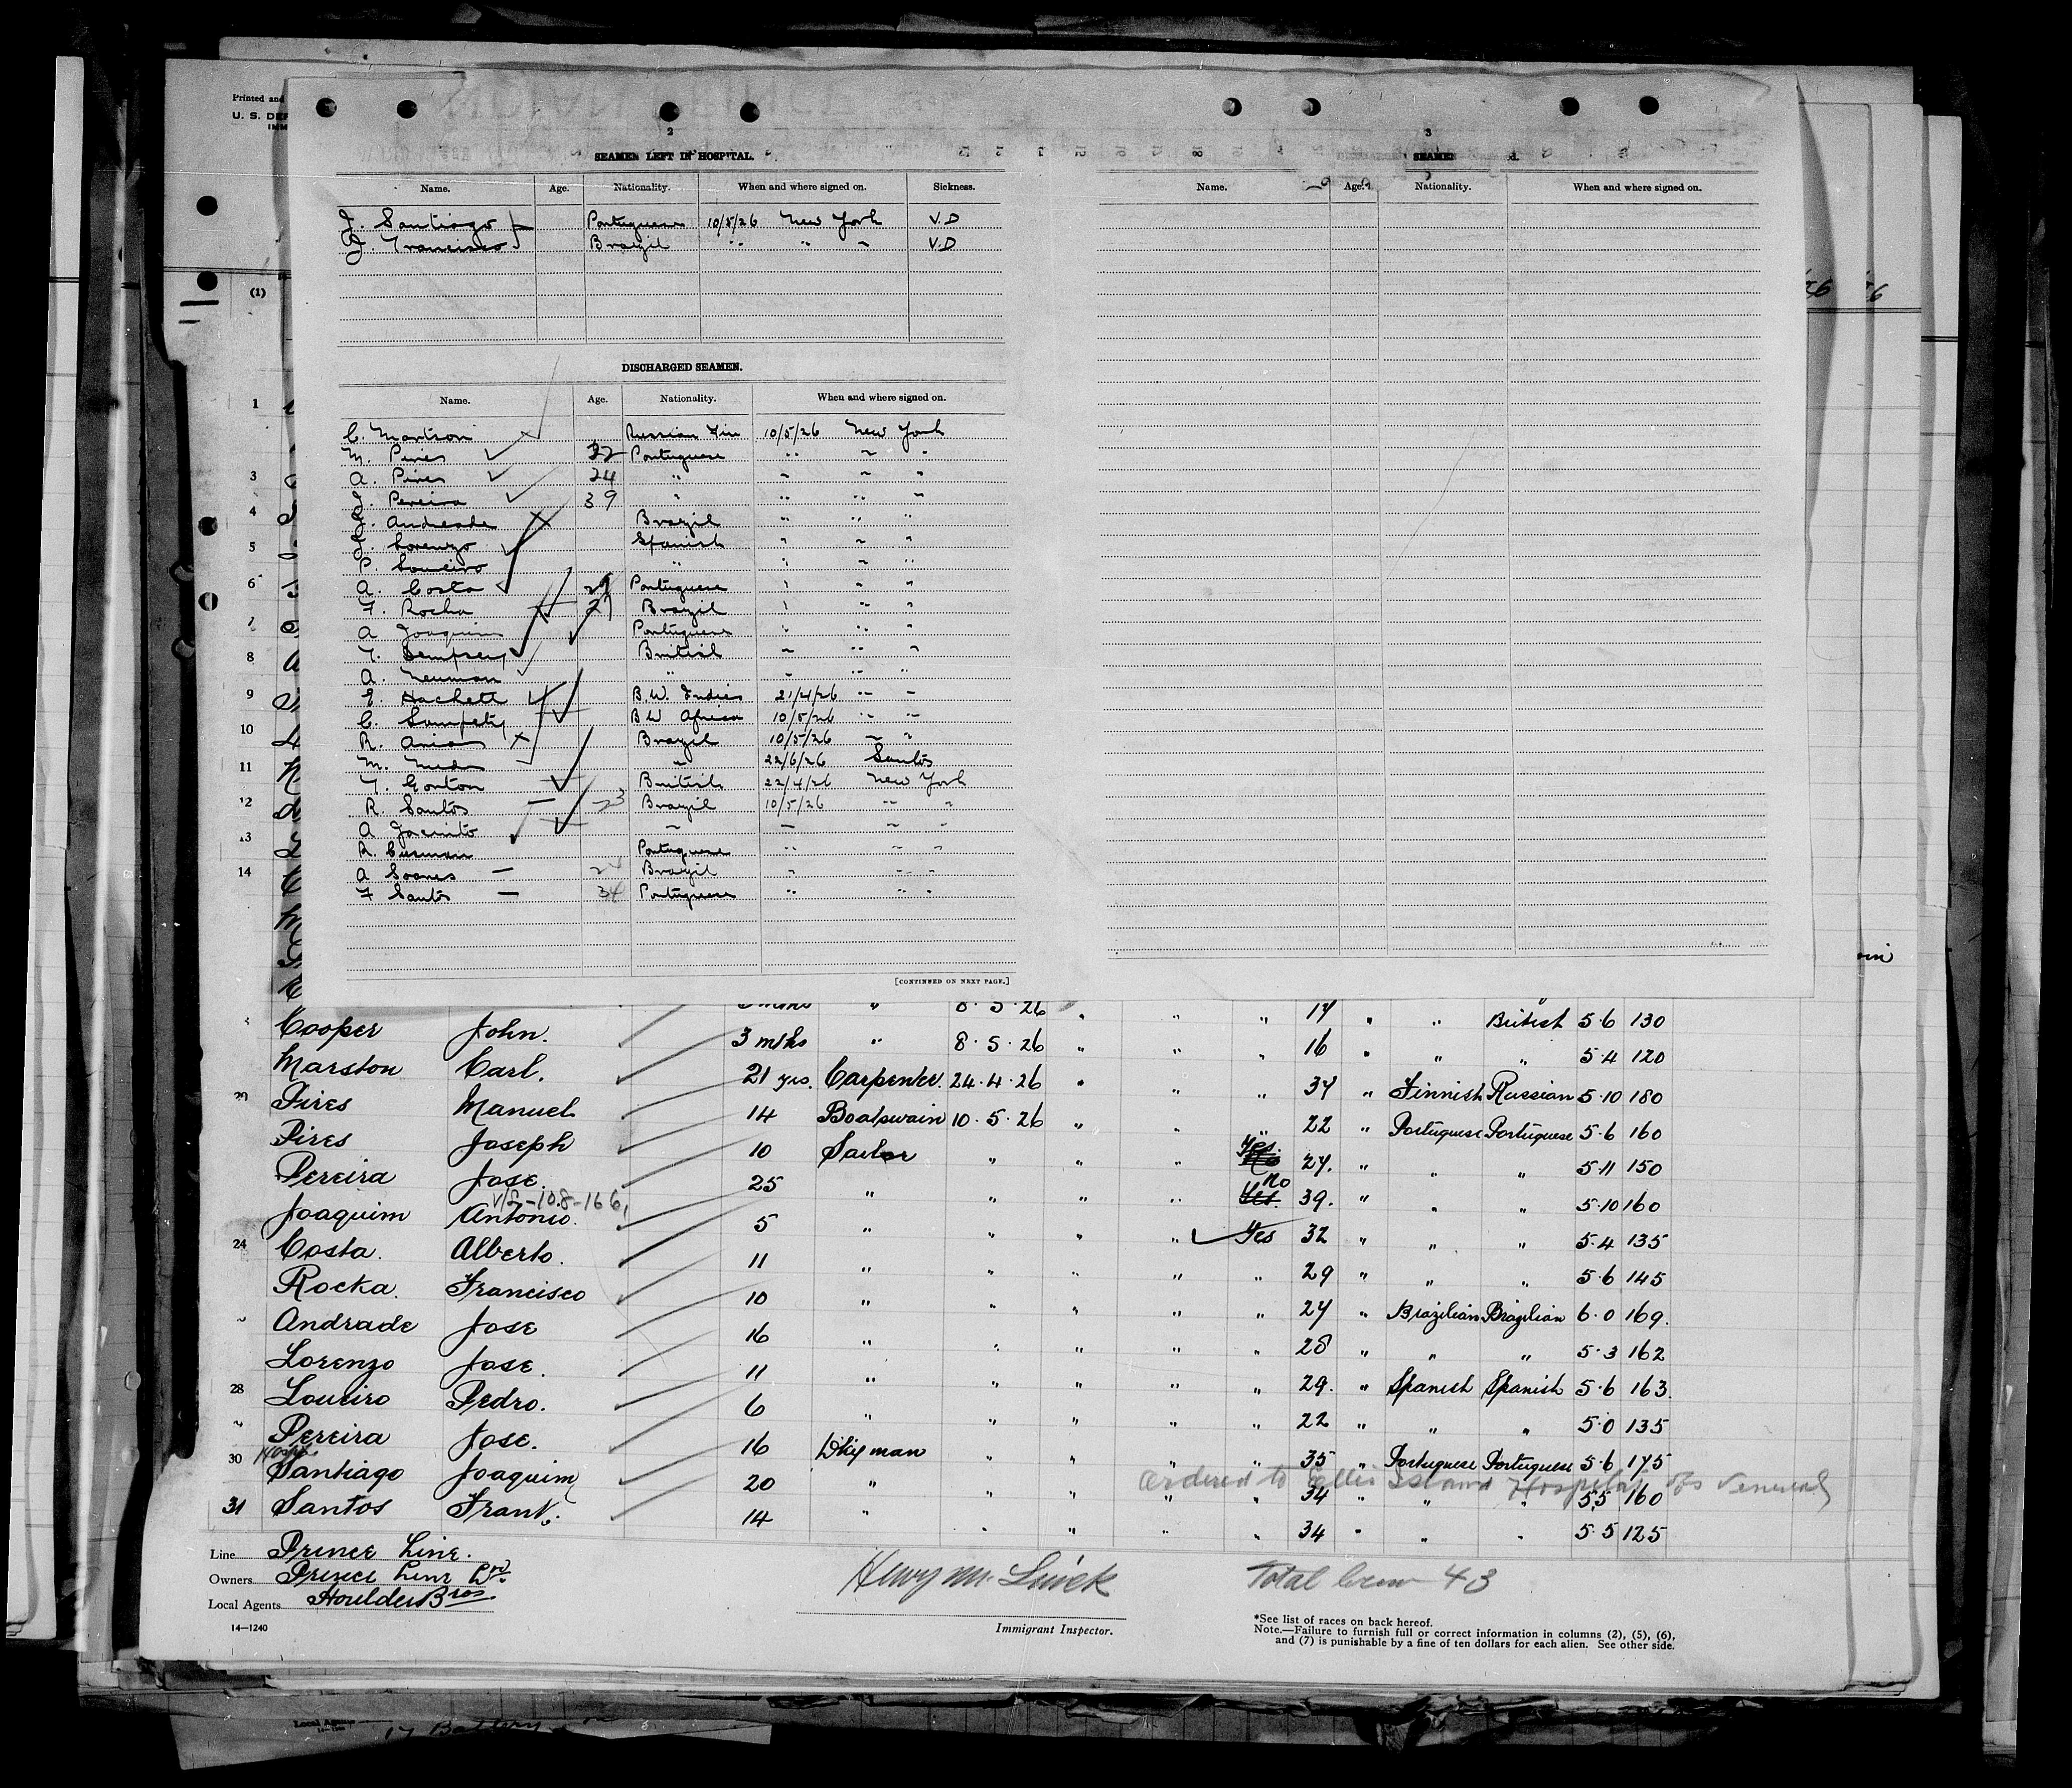 Printed and
U. S. DEP
IMM
(1)
2
SEAMEN LEFT IN HOSPITAL.
Name. Age. Nationality. When and where signed on. Sickness.
J. Santiago Portuguese 10/5/26 New York V.D
J. Francisco Brazil " " " V.D
DISCHARGED SEAMEN.
Name. Age. Nationality. When and where signed on.
C. Martson Russian Fin 10/5/26 New York
M. Pires 32 Portuguese " " "
A. Pires 24 " " " "
J. Pereira 39 " " " "
J. Andreade Brazil " " "
J. Lorenzo Spanish " " "
P. Loureiro " " " "
A. Costa 29 Portuguese " " "
F. Rocha Brazil " " "
A Joaquim Portuguese " " "
T. Dempsey British " " "
A. Neuman " " " "
E. Hachett B.W. Indies 21/4/26 " "
C. Sampety B W Africa 10/5/26 " "
R. Arias Brazil 10/5/26 " "
M. " 22/6/26 Santos
T. Gorton British 22/4/26 New York
R. Santos 23 Brazil 10/5/26 " "
A Jacinto " " " "
R. Portuguese " " "
A Soares 24 Brazil " " "
F Santos 34 Portuguese " " "
[CONTINUED ON NEXT PAGE.]
3
SEAMEN d.
Name. Age. Nationality. When and where signed on.
1
3
4
5
6
7
8
9
10
11
12
13
14
3 mths " 8·5·26 " " " 17 " " British 5·6 130
Cooper John. 3 mths " 8·5·26 " " " 16 " " " 5·4 120
Marston Carl. 21 yrs. Carpenter. 24·4·26 " " " 37 " Finnish Russian 5·10 180
20 Pires Manuel 14 Boatswain 10·5·26 " " " 22 " Portuguese Portuguese 5·6 160
Pires Joseph 10 Sailor " " " Yes 24. " " " 5·11 150
Pereira Jose. 25 " " " " Yes. No 39. " " " 5·10 160
v/2-10.8-166,
Joaquim Antonio. 5 " " " " Yes 32 " " " 5·4 135
24 Costa. Alberto. 11 " " " " " 29 " " " 5·6 145
Rocka. Francisco 10 " " " " " 24 " Brazilian Brazilian 6·0 169.
Andrade Jose 16 " " " " " 28 " " " 5·3 162
Lorenzo Jose. 11 " " " " " 29. " Spanish Spanish 5·6 163.
28 Loureiro Pedro. 6 " " " " " 22 " " " 5·0 135
Pereira Jose. 16 Dkyman " " " " 35 " Portuguese Portuguese 5·6 175
Hospt. ordered to Ellis Island Hospital Venereal
30 Santiago Joaquim 20 " " " " " 34 " " " 5·5 160
31 Santos Frank. 14 " " " " " 34 " " " 5·5 125
Line Prince Line.
Owners Prince Line Ltd.
Local Agents Houlder Bros.
14—1240
Immigrant Inspector.
Total Crew 43
*See list of races on back hereof.
Note.—Failure to furnish full or correct information in columns (2), (5), (6),
and (7) is punishable by a fine of ten dollars for each alien. See other side.
Local Agents
17 Battery